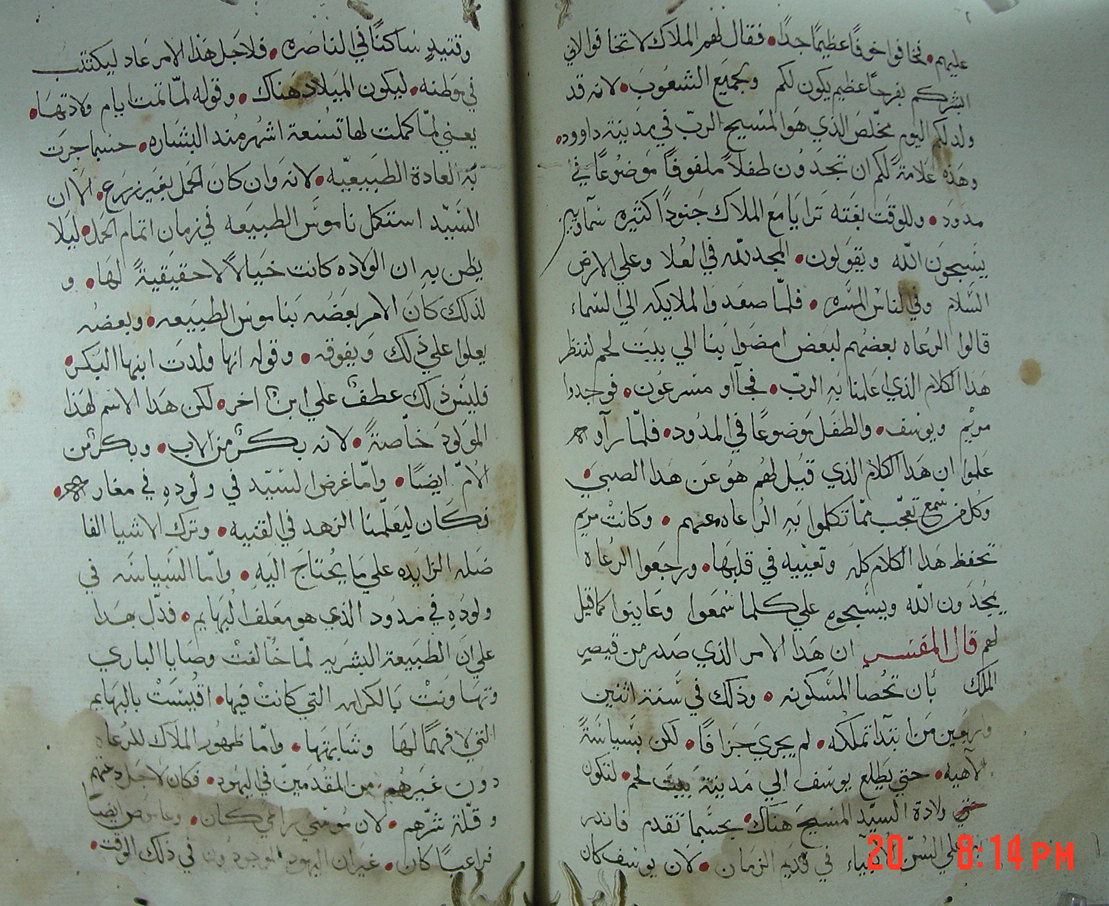 عليهم • فخافوا خوفًا عظيمًا جدًا • فقال لهم الملاك لا تخافوا لاني
ابشركم بفرحًا عظيم يكون لكم وبجميع الشعوب • لانه قد
ولد لكم اليوم مخلص الذي هو المسيح الرب في مدينة داوود •
وهذه علامة لكم ان تجدون طفلاً ملفوفًا موضوعًا في
مدود • وللوقت بغته ترايا مع الملاك جنودًا كثيره سماويين
يسبحون الله ويقولون • المجد لله في العلا وعلي الارض
السلام وفي الناس المسره • فلما صعدوا الملايكه الي السماء
قالوا الرعاه بعضهم لبعض امضوا بنا الي بيت لحم لننظر
هدا الكلام الذي اعلمنا به الرب • فجآاو مسرعون • فوجدوا
مريم ويوسف • والطفل موضوعًا في المدود • فلما رآوه
علموا ان هدا الكلام الذي قيل لهم هو عن هدا الصبي •
وكل من سمع تعجب مما تكلموا به الرعاه معهم • وكانت مريم
تحفظ هدا الكلام كله وتعييه في قلبها • ورجعوا الرعاه
يمجدون الله ويسبحوه علي كلما سمعوا وعاينوا كما قيل
لهم قال المفسر ان هدا الامر الذي صدر من قيصر
الملك بان تحصا المسكونه • وذلك في سنة اثنين
واربعين من ابتدا تملكه • لم يجري جزافًا • لكن بسياسة
لاهيه • حتي يطلع يوسف الي مدينة بيت لحم • لتكون
حتي ولادة السيد المسيح هناك • بحسبما تقدم فاندر
علي السن في قديم الزمان • لان يوسف كان
20 8:14 PM
وقتيدٍ ساكنًا في الناصره • فلاجل هذا الامر عاد ليكتتب
في وطنه • ليكون الميلاد هناك • وقوله لما تمت ايام ولادتها •
يعني لما كملت لها تسعة اشهر مند البشاره • حسبما جرت
به العادة الطبيعيه • لانه وان كان الحمل بغير زرع • الا ان
السيد استكمل ناموس الطبيعه في زمان اتمام الحمل • ليلا
يظن به ان الولاده كانت خيالاً لا حقيقيةً لها • و
لذلك كان الامر بعضه بناموس الطبيعه • وبعضه
يعلوا علي ذلك ويفوقه • وقوله انها ولدت ابنها البكر •
فليس ذلك عطف علي ابن اخر • لكن هدا الاسم لهذا
المولود خاصةً • لانه بكرٌ من الاب • وبكرٌ من
الامّ ايضًا • واما غرض السيد في ولوده في مغاره •
فكان ليعلمنا الزهد في القنيه • وترك الاشيا الفا
ضله الزايده علي ما يحتاج اليه • واما السياسه في
ولوده في مدود الذي هو معلف البهايم • فدل بهدا
علي ان الطبيعة البشريه لما خالفت وصايا الباري
وتهاونت بالكرامه التي كانت فيها • اقيست بالبهايم
التي لا فهمًا لها وشابهتها • واما ظهور الملاك للرعاه
دون غيرهم من المقدمين في اليهود • فكان لاجل دعتهم
وقلة شرهم • لان موسي راعي كان • ويعقوب ايضًا
راعيًا كان • غير ان اليهود الموجودون في ذلك الوقت •